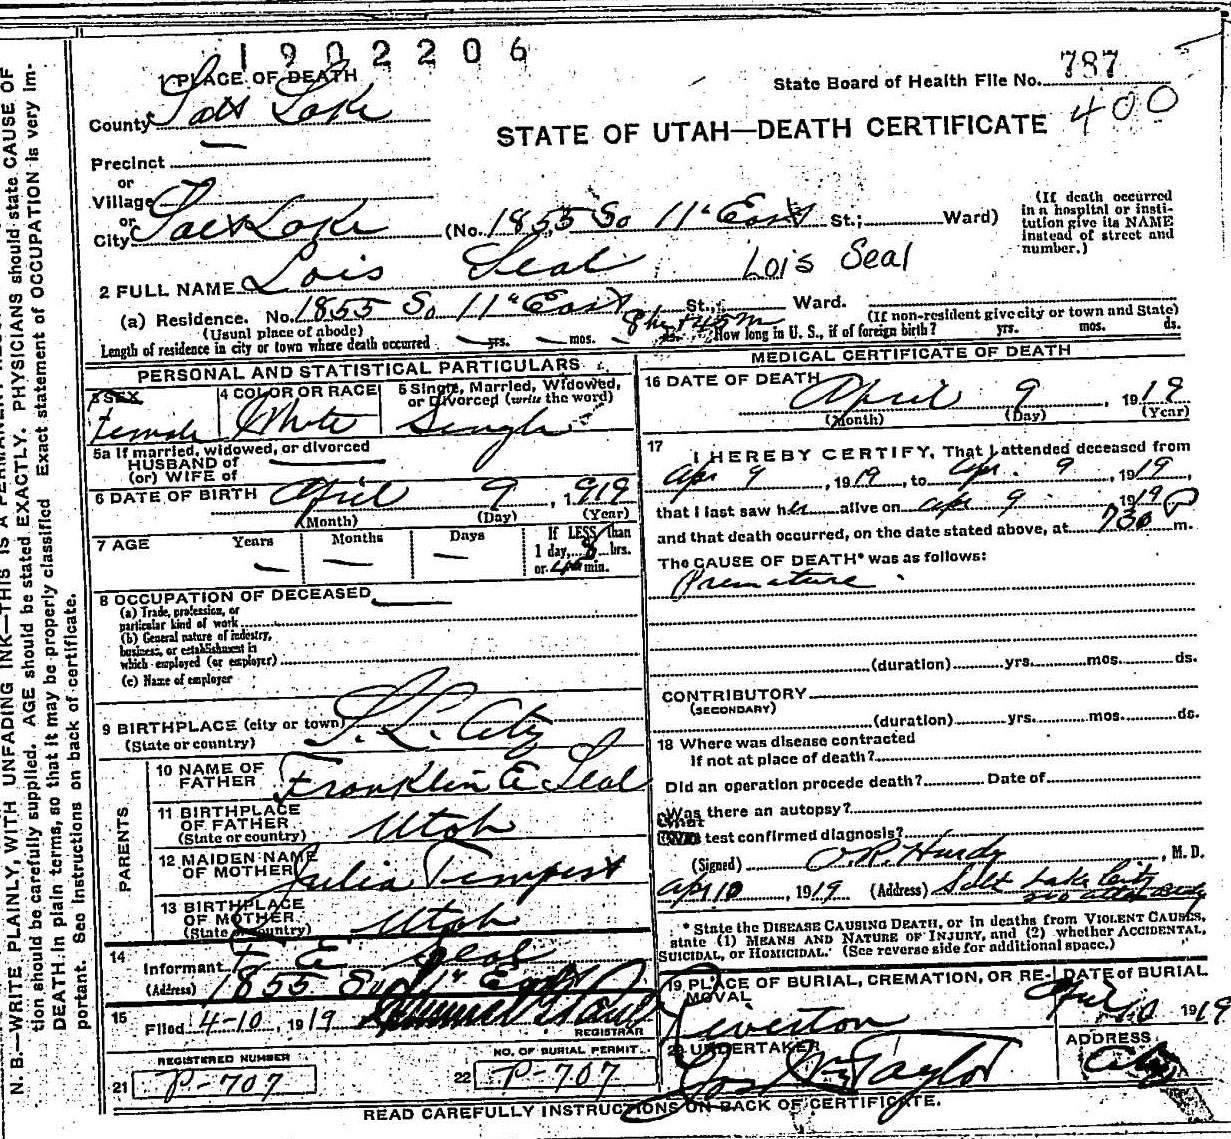 1902206
1 PLACE OF DEATH
State Board of Health File No. 787
County Salt Lake
STATE OF UTAH—DEATH CERTIFICATE 400
Precinct
or
Village
or
City Salt Lake (No. 1855 So 11" East St.; Ward)
(If death occurred in a hospital or insti-
tution give its NAME instead of street and number.)
2 FULL NAME Lois Seal Lois Seal
(a) Residence. No. 1855 So 11" East St., Ward.
(Usual place of abode) (If non-resident give city or town and State)
Length of residence in city or town where death occurred yrs. mos. ds. How long in U. S., if of foreign birth? yrs. mos. ds.
PERSONAL AND STATISTICAL PARTICULARS
3 SEX
Female
4 COLOR OR RACE
White
5 Single, Married, Widowed,
or Divorced (write the word)
Single
5a If married, widowed, or divorced
HUSBAND of
(or) WIFE of
6 DATE OF BIRTH April 9, 1919
(Month) (Day) (Year)
7 AGE Years Months Days If LESS than
1 day, 8 hrs.
or min.
8 OCCUPATION OF DECEASED
(a) Trade, profession, or
particular kind of work
(b) General nature of industry,
business, or establishment in
which employed (or employer)
(c) Name of employer
9 BIRTHPLACE (city or town) S. L. City
(State or country)
PARENTS
10 NAME OF
FATHER Franklin E Seal
11 BIRTHPLACE
OF FATHER Utah
(State or country)
12 MAIDEN NAME
OF MOTHER Julia Tempest
13 BIRTHPLACE
OF MOTHER Utah
(State or country)
14
Informant F E Seal
(Address) 1855 So 11" East
15
Filed 4-10, 1919
REGISTRAR
REGISTERED NUMBER
21 P-707
NO. OF BURIAL PERMIT
22 P-707
MEDICAL CERTIFICATE OF DEATH
16 DATE OF DEATH April 9, 1919
(Month) (Day) (Year)
17 I HEREBY CERTIFY, That I attended deceased from
Apr 9, 1919, to Apr. 9, 1919,
that I last saw her alive on Apr 9 1919
and that death occurred, on the date stated above, at 730 m.
The CAUSE OF DEATH* was as follows:
Premature
(duration) yrs. mos. ds.
CONTRIBUTORY
(SECONDARY)
(duration) yrs. mos. ds.
18 Where was disease contracted
If not at place of death?
Did an operation precede death? Date of
Was there an autopsy?
What test confirmed diagnosis?
(Signed) O.R. Hurdy, M. D.
Apr 10, 1919 (Address) Salt Lake City
* State the DISEASE CAUSING DEATH, or in deaths from VIOLENT CAUSES,
state (1) MEANS AND NATURE OF INJURY, and (2) whether ACCIDENTAL,
SUICIDAL, or HOMICIDAL. (See reverse side for additional space.)
19 PLACE OF BURIAL, CREMATION, OR RE-
MOVAL
Riverton
DATE of BURIAL
April 10 1919
20 UNDERTAKER
Jos Wm Taylor
ADDRESS
City
READ CAREFULLY INSTRUCTIONS ON BACK OF CERTIFICATE.
N. B.—WRITE PLAINLY, WITH UNFADING INK—THIS IS A PERMANENT
tion should be carefully supplied. AGE should be stated EXACTLY. PHYSICIANS should state CAUSE OF
DEATH in plain terms, so that it may be properly classified. Exact statement of OCCUPATION is very im-
portant. See Instructions on back of certificate.